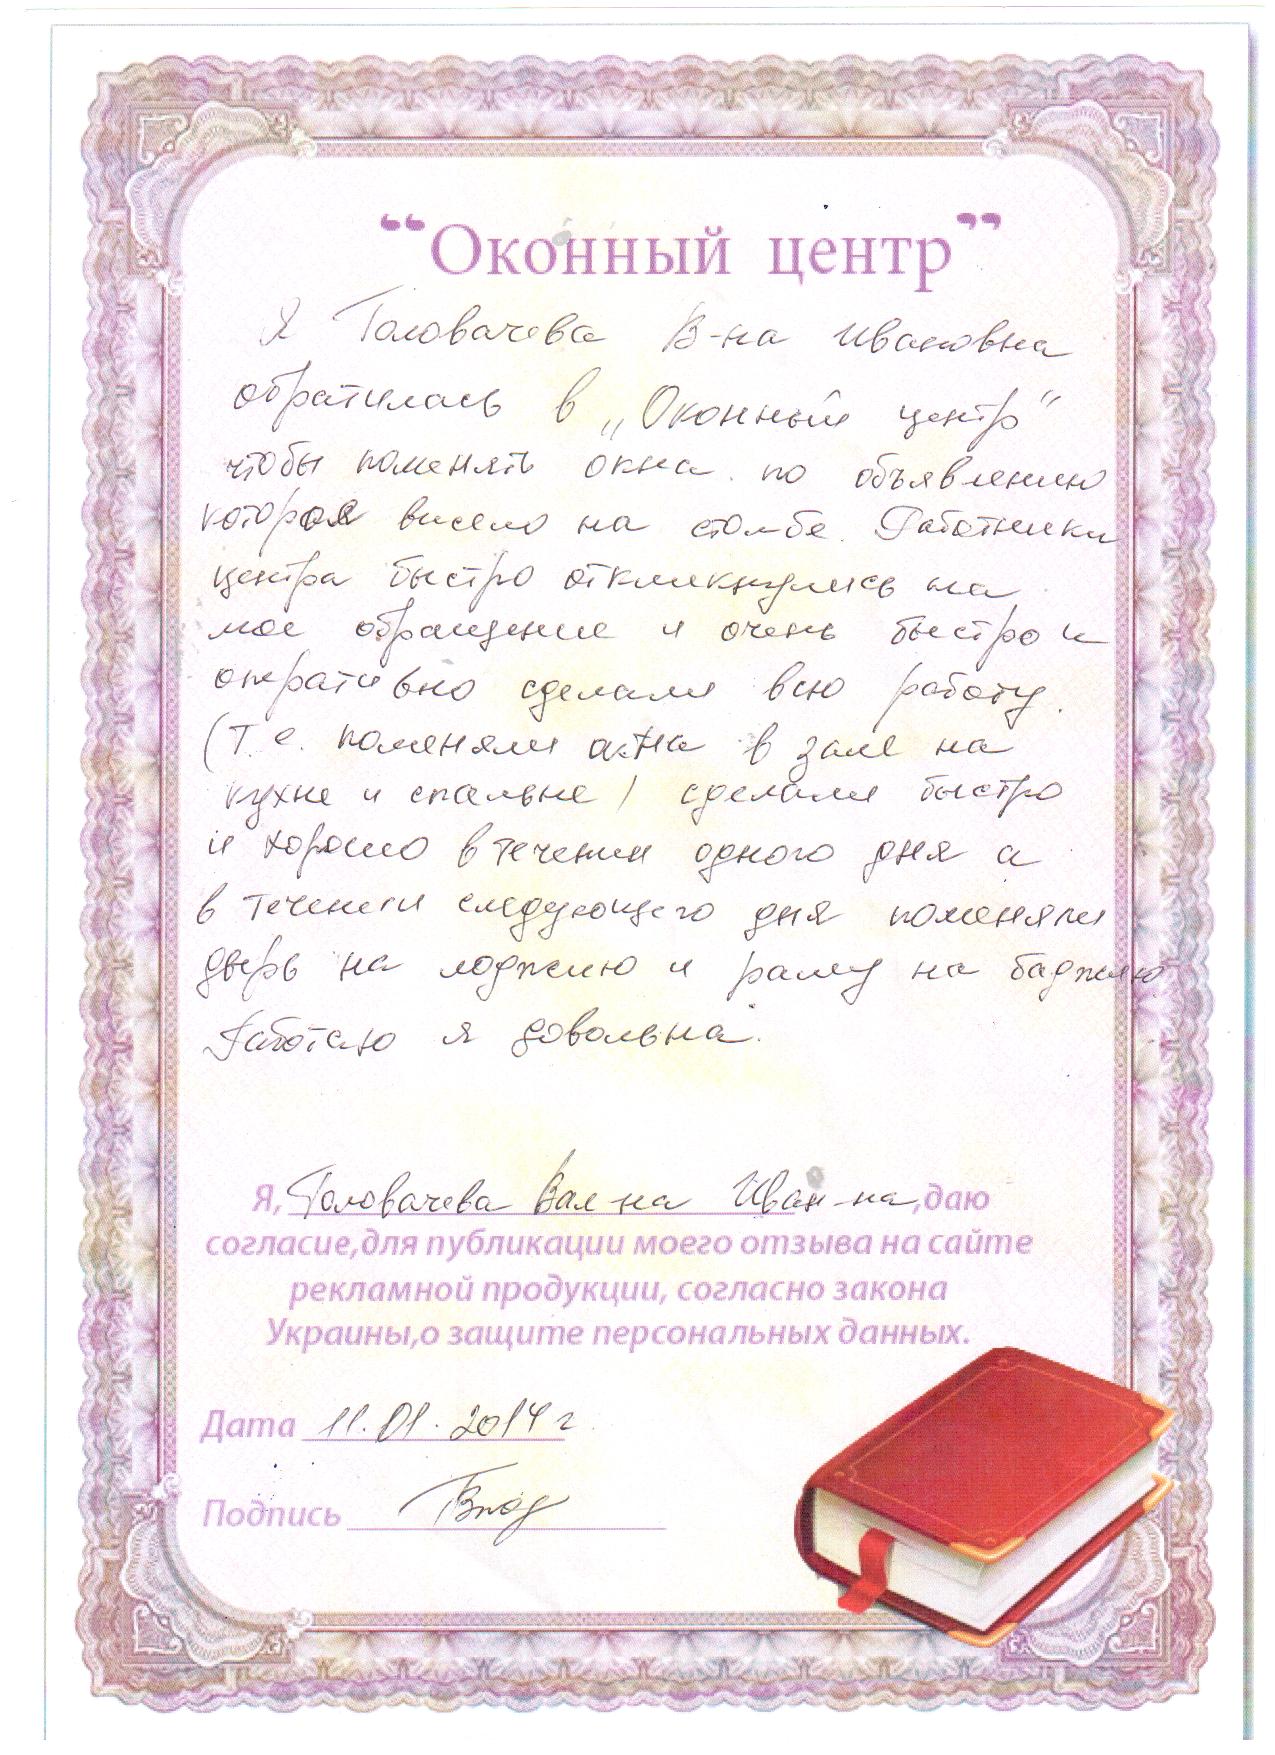 “Оконный центр”
Я Головачева В-на Ивановна
обратилась в „Оконный центр“
чтобы поменять окна по объявлению
которая висело на столбе. Работники
центра быстро откликнулись на
мое обращение и очень быстро и
оперативно сделали всю работу.
(т.е. поменяли окна в зале на
кухне и спальне) сделали быстро
и хорошо в течении одного дня а
в течении следующего дня поменяли
дверь на лоджию и раму на
Работою я довольна.
Я, Головачева Вал-на Иван-на, даю
согласие,для публикации моего отзыва на сайте
рекламной продукции, согласно закона
Украины,о защите персональных данных.
Дата 11.01.2014 г.
Подпись